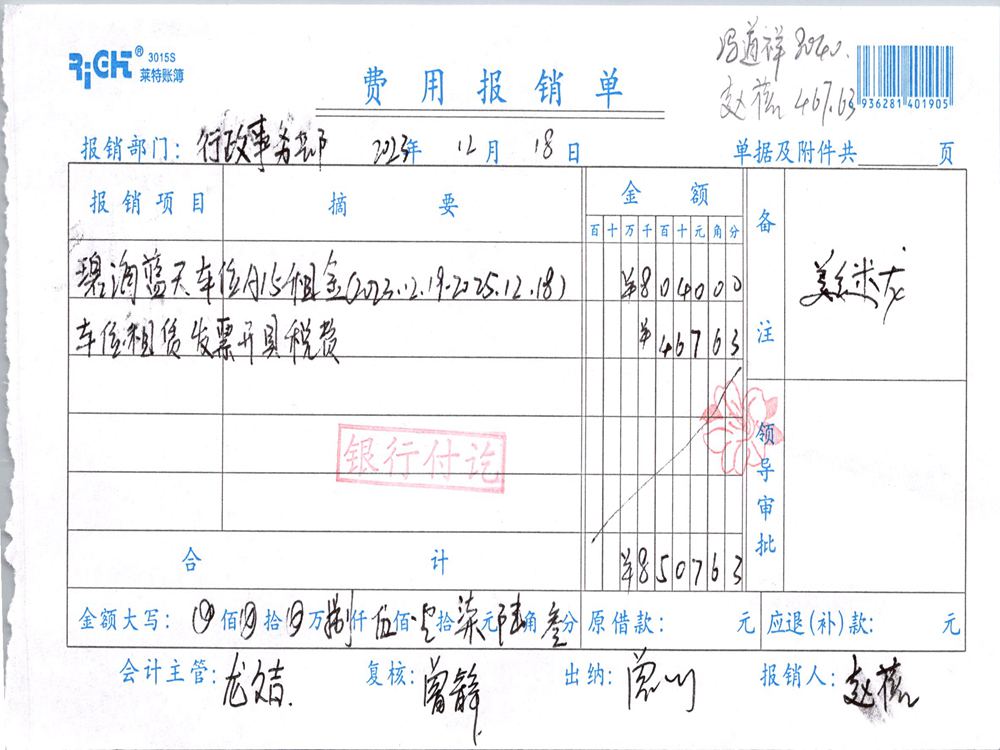 RiGHT® 3015S
莱特账簿
冯道祥 8040.
赵蓓 467.63
936281 401905
费用报销单
报销部门: 行政事务部 2023年 12月 18日 单据及附件共 页
报销项目 摘要 金额 备注
百十万千百十元角分
碧海蓝天车位A15租金(2023.12.19-2025.12.18) ¥804000
车位租赁发票开具税费 ¥46763
银行付讫
领导审批
合计 ¥850763
金额大写: 佰 拾 万 捌仟 伍佰 拾 柒元 陆角 叁分 原借款: 元 应退(补)款: 元
会计主管: 龙 复核: 曾静 出纳: 曾 报销人: 赵蓓